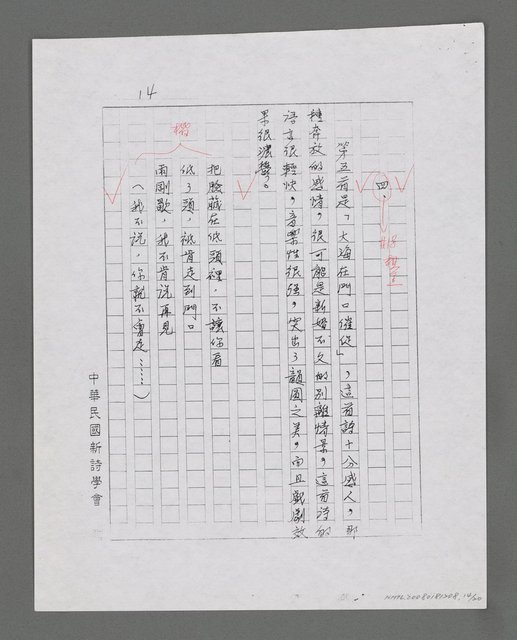 14
四、
#18 粗宋
第五首是「大海在門口催促」，這首詩十分感人，那
種奔放的感情，很可能是新婚不久的別離情景，這首詩的
語言很輕快，音樂性很強，突出了韻圓之美，而且戲劇效
果很濃馥。
楷
把臉藏在低頭裡，不讓你看
低了頭，祇肯走到門口
雨剛歇，我不肯說再見
（我不說，你就不會走……）
中華民國新詩學會
NMTL20080181208, 14/20